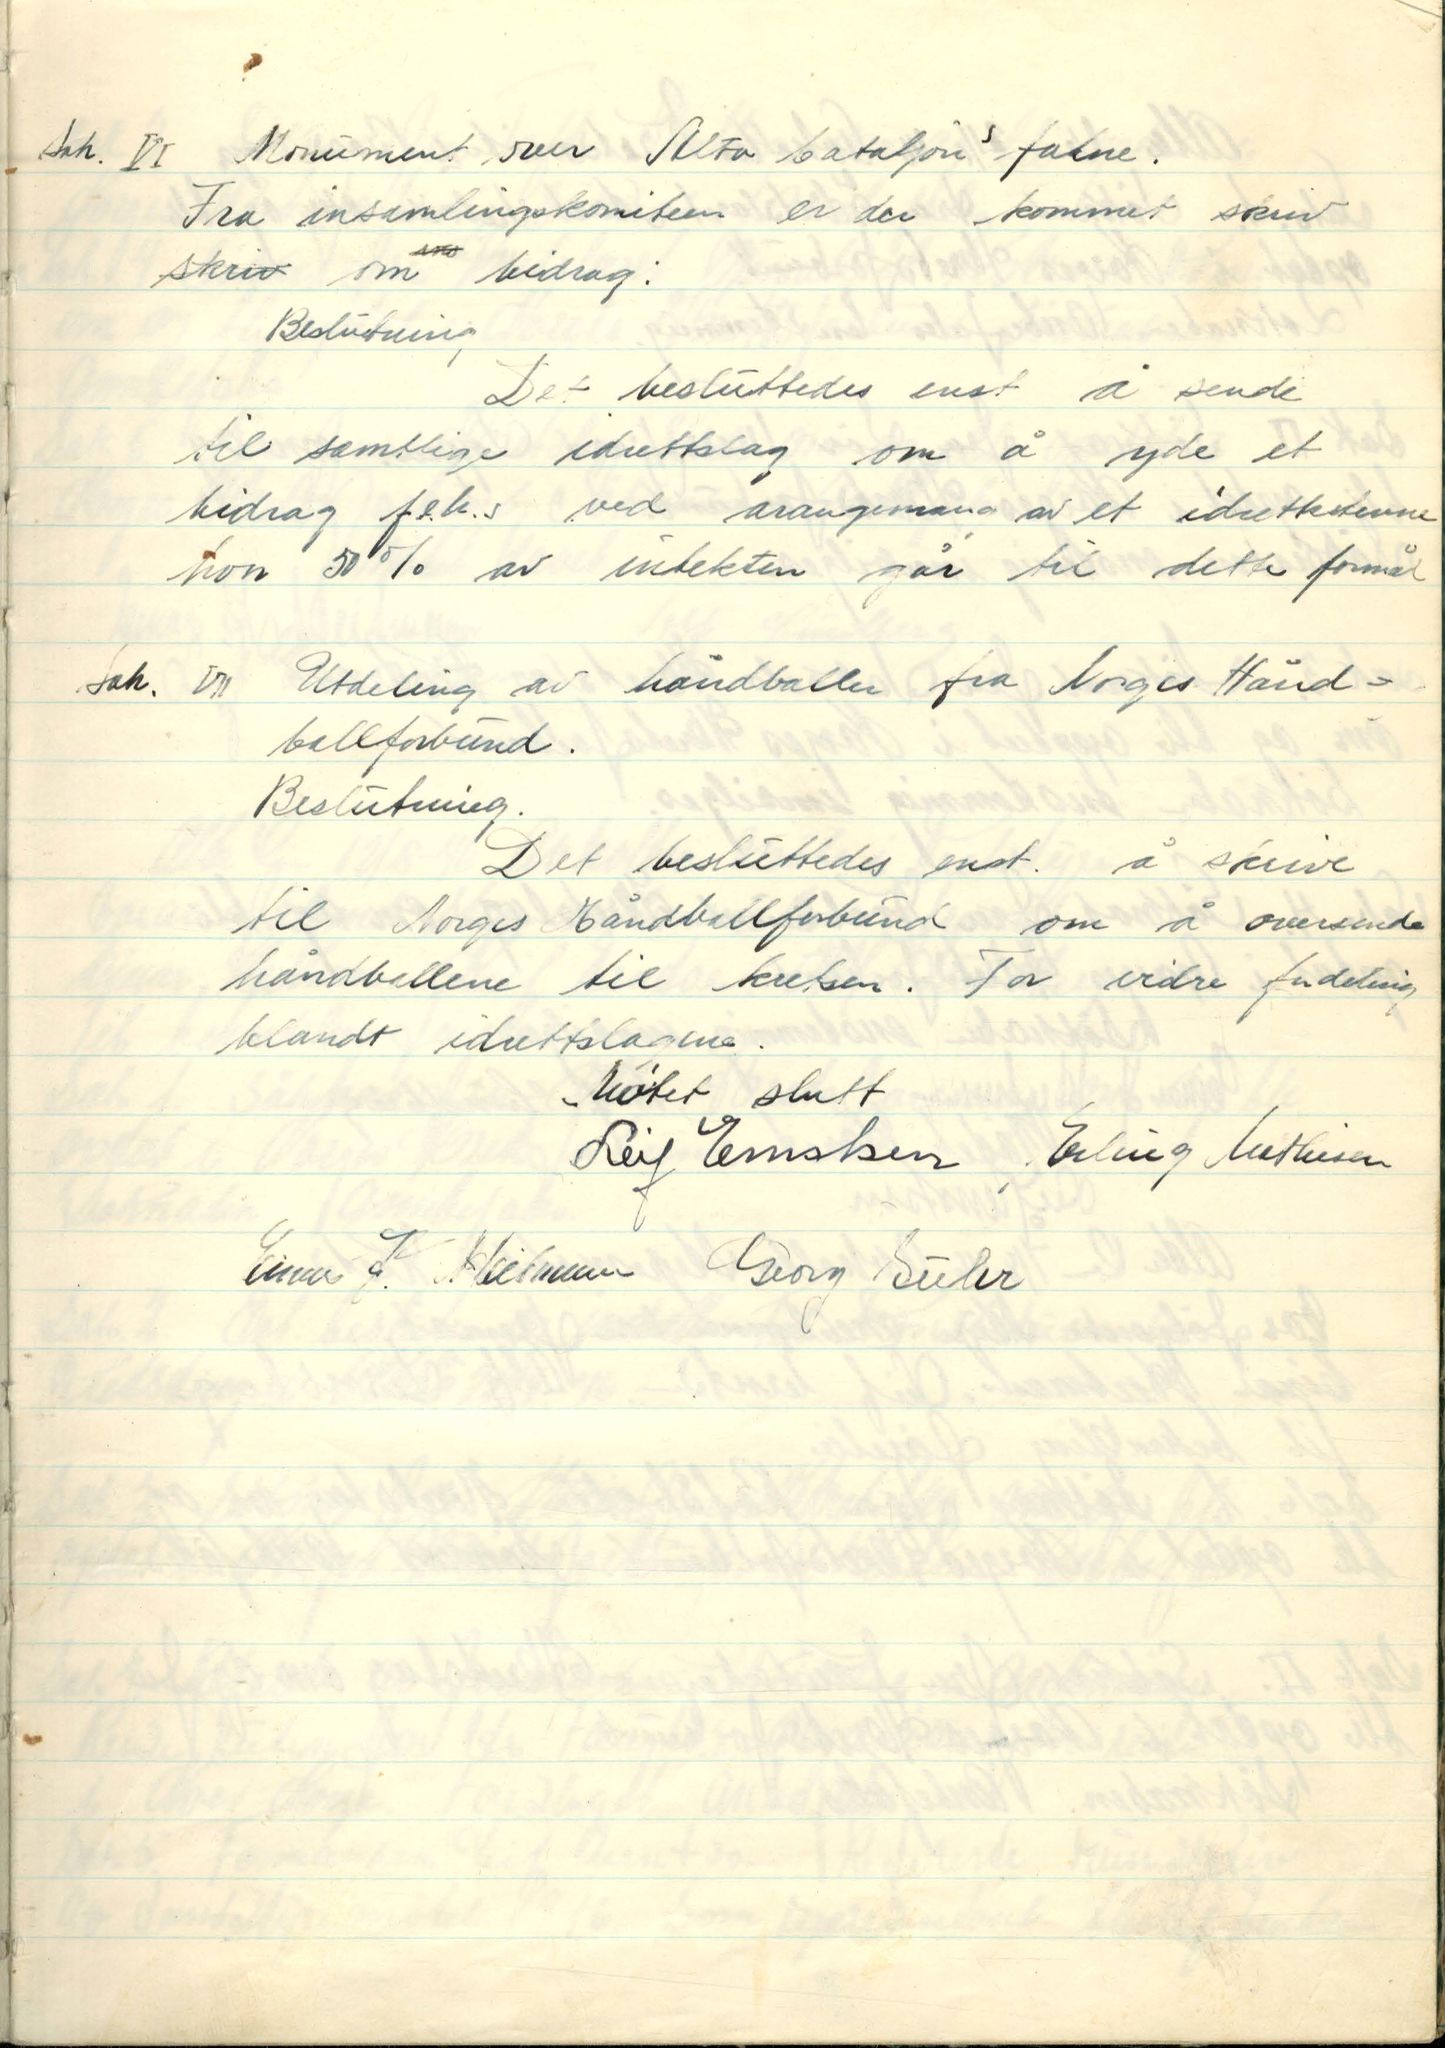 Sak. VI Monument over Alta bataljon's falne.
Fra insamlingskomiteen er der kommet skriv
skriv om bidrag:
Beslutning
Det besluttedes enst å sende
til samtlige idrettslag om å yde et
bidrag f.eks ved arangemang av et idrettstevne
hvor 50% av intekten går til dette formål
Sak. VII Utdeling av håndballer fra Norges Hånd=
ballforbund.
Beslutning.
Det besluttedes enst. å skrive
til Norges Håndballforbund om å oversende
håndballene til kretsen. For vidre fordeling
blandt idrettslagene.
Møtet slutt
Leif Ernstsen Erling Mathisen
Einar Heitmann Georg